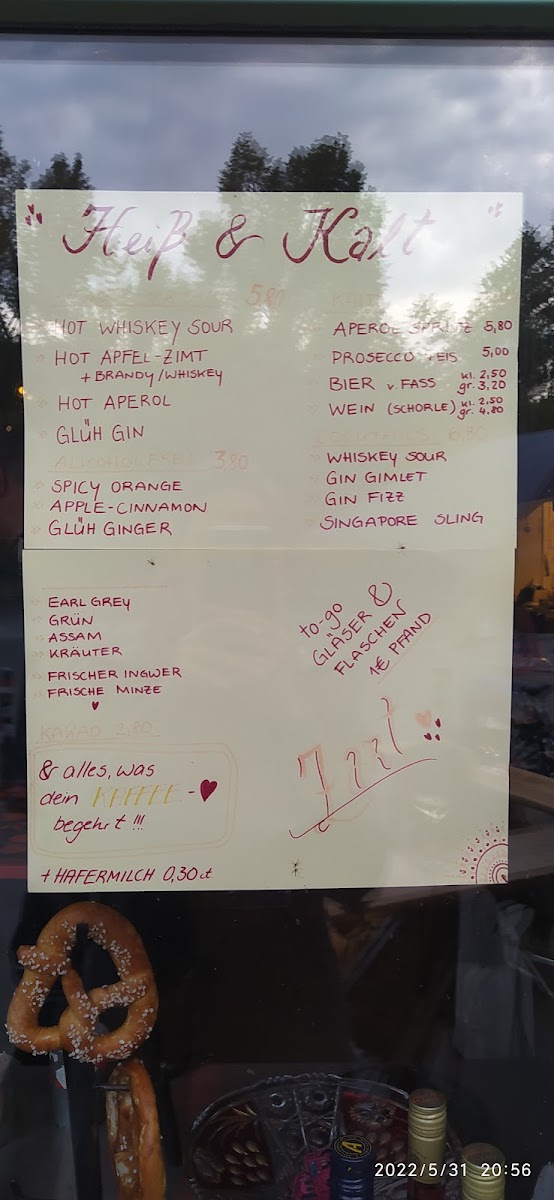 Heiß & Kalt
5,80
HOT WHISKEY SOUR
HOT APFEL-ZIMT
+ BRANDY/WHISKEY
HOT APEROL
GLÜH GIN
ALKOHOLFREI 3,80
SPICY ORANGE
APPLE-CINNAMON
GLÜH GINGER
APEROL SPRITZ 5,80
PROSECCO EIS 5,00
BIER v. FASS kl. 2,50
gr. 3,20
WEIN (SCHORLE) kl. 2,50
gr. 4,80
COCKTAILS 6,80
WHISKEY SOUR
GIN GIMLET
GIN FIZZ
SINGAPORE SLING
EARL GREY
GRÜN
ASSAM
KRÄUTER
FRISCHER INGWER
FRISCHE MINZE
KAKAO 2,80
& alles, was
dein KAFFEE -
begehrt !!!
+ HAFERMILCH 0,30ct
to-go
GLÄSER &
FLASCHEN
1€ PFAND
2022/5/31 20:56